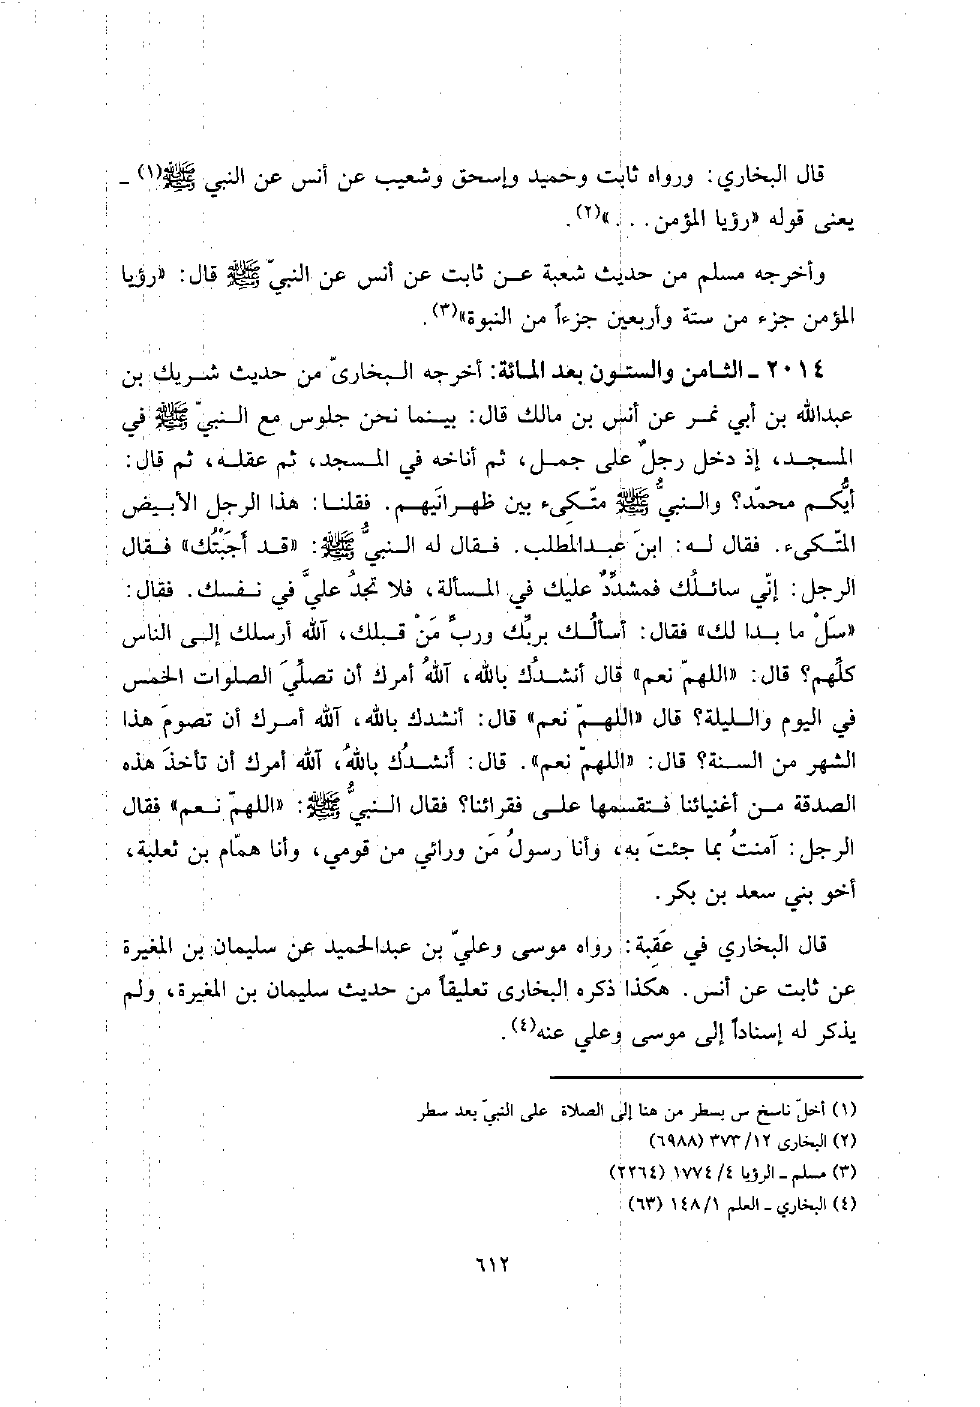 قال البخاري: ورواه ثابت وحميد وإسحق وشعيب عن أنس عن النبي ﷺ(١) ـ
يعنى قوله «رؤيا المؤمن. . .»(٢).
وأخرجه مسلم من حديث شعبة عن ثابت عن أنس عن النبيّ ﷺ قال: «رؤيا
المؤمن جزء من ستة وأربعين جزءاً من النبوة»(٣).
٢٠١٤ ـ الثامن والستون بعد المائة: أخرجه البخارىّ من حديث شريك بن
عبدالله بن أبي نمر عن أنس بن مالك قال: بينما نحن جلوس مع النبيّ ﷺ في
المسجد، إذ دخل رجلٌ على جمل، ثم أناخه في المسجد، ثم عقله، ثم قال:
أيُّكم محمّد؟ والنبيُّ ﷺ متّكِىء بين ظهرانَيهم. فقلنا: هذا الرجل الأبيض
المتّكىء. فقال له: ابنَ عبدالمطلب. فقال له النبيُّ ﷺ: «قد أجَبْتُك» فقال
الرجل: إنّي سائلُك فمشدِّدٌ عليك في المسألة، فلا تجدُ عليَّ في نفسك. فقال:
«سَلْ ما بدا لك» فقال: أسألُك بربِّك وربِّ مَنْ قبلك، آلله أرسلك إلى الناس
كلِّهم؟ قال: «اللهمّ نعم» قال أنشدُك بالله، آللهُ أمرك أن تصلِّيَ الصلوات الخمس
في اليوم والليلة؟ قال «اللهمّ نعم» قال: أنشدك بالله، آلله أمرك أن تصومَ هذا
الشهر من السنة؟ قال: «اللهمّ نعم». قال: أنشدُك باللهُ، آلله أمرك أن تأخذَ هذه
الصدقة من أغنيائنا فتقسمها على فقرائنا؟ فقال النبيُّ ﷺ: «اللهمّ نعم» فقال
الرجل: آمنتُ بما جئتَ به، وأنا رسولُ مَن ورائي من قومي، وأنا همّام بن ثعلبة،
أخو بني سعد بن بكر.
قال البخاري في عَقِبة: رواه موسى وعليّ بن عبدالحميد عن سليمان بن المغيرة
عن ثابت عن أنس. هكذا ذكره البخارى تعليقاً من حديث سليمان بن المغيرة، ولم
يذكر له إسناداً إلى موسى وعلي عنه(٤).
(١) أخلّ ناسخ س بسطر من هنا إلى الصلاة على النبيّ بعد سطر
(٢) البخارى ١٢/ ٣٧٣ (٦٩٨٨)
(٣) مسلم ـ الرؤيا ٤/ ١٧٧٤ (٢٢٦٤)
(٤) البخاري ـ العلم ١/ ١٤٨ (٦٣)
٦١٢